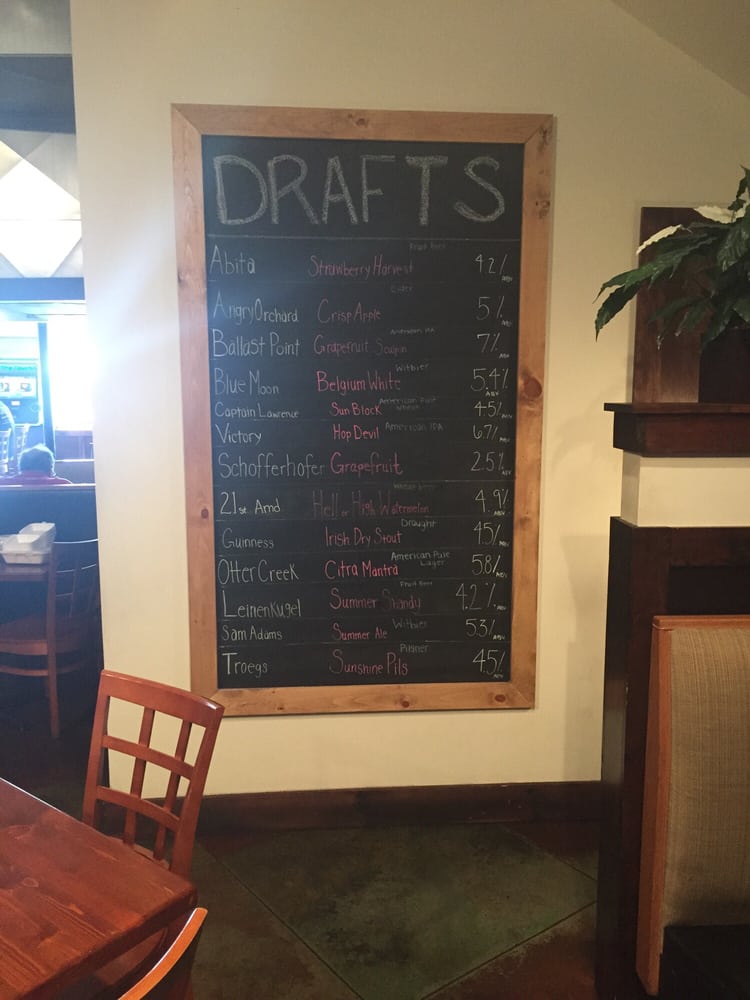 DRAFTS
Abita Strawberry Harvest Fruit Beer 4.2% ABV
Angry Orchard Crisp Apple Cider 5% ABV
Ballast Point Grapefruit Sculpin American IPA 7% ABV
Blue Moon Belgium White Witbier 5.4% ABV
Captain Lawrence Sun Block American Pale Wheat 4.5% ABV
Victory Hop Devil American IPA 6.7% ABV
Schofferhofer Grapefruit 2.5% ABV
21st. Amd Hell or High Watermelon Wheat Beer 4.9% ABV
Guinness Irish Dry Stout Draught 4.5% ABV
Otter Creek Citra Mantra American Pale Lager 5.8% ABV
Leinenkugel Summer Shandy Fruit Beer 4.2% ABV
Sam Adams Summer Ale Witbier 5.3% ABV
Troegs Sunshine Pils Pilsner 4.5% ABV